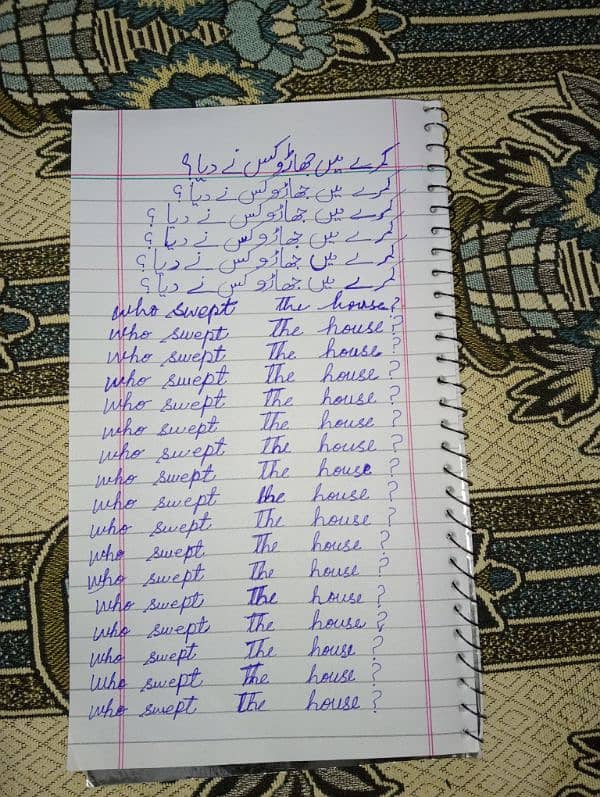 کمرے میں جھاڑو کس نے دیا؟
کمرے میں جھاڑو کس نے دیا؟
کمرے میں جھاڑو کس نے دیا؟
کمرے میں جھاڑو کس نے دیا؟
کمرے میں جھاڑو کس نے دیا؟
کمرے میں جھاڑو کس نے دیا؟
who swept The house?
who swept The house?
who swept The house?
who swept The house?
who swept The house?
who swept The house?
who swept The house?
who swept The house?
who swept the house?
who swept The house?
who swept The house?
who swept The house?
who swept The house?
who swept The house?
who swept The house?
who swept The house?
who swept The house?